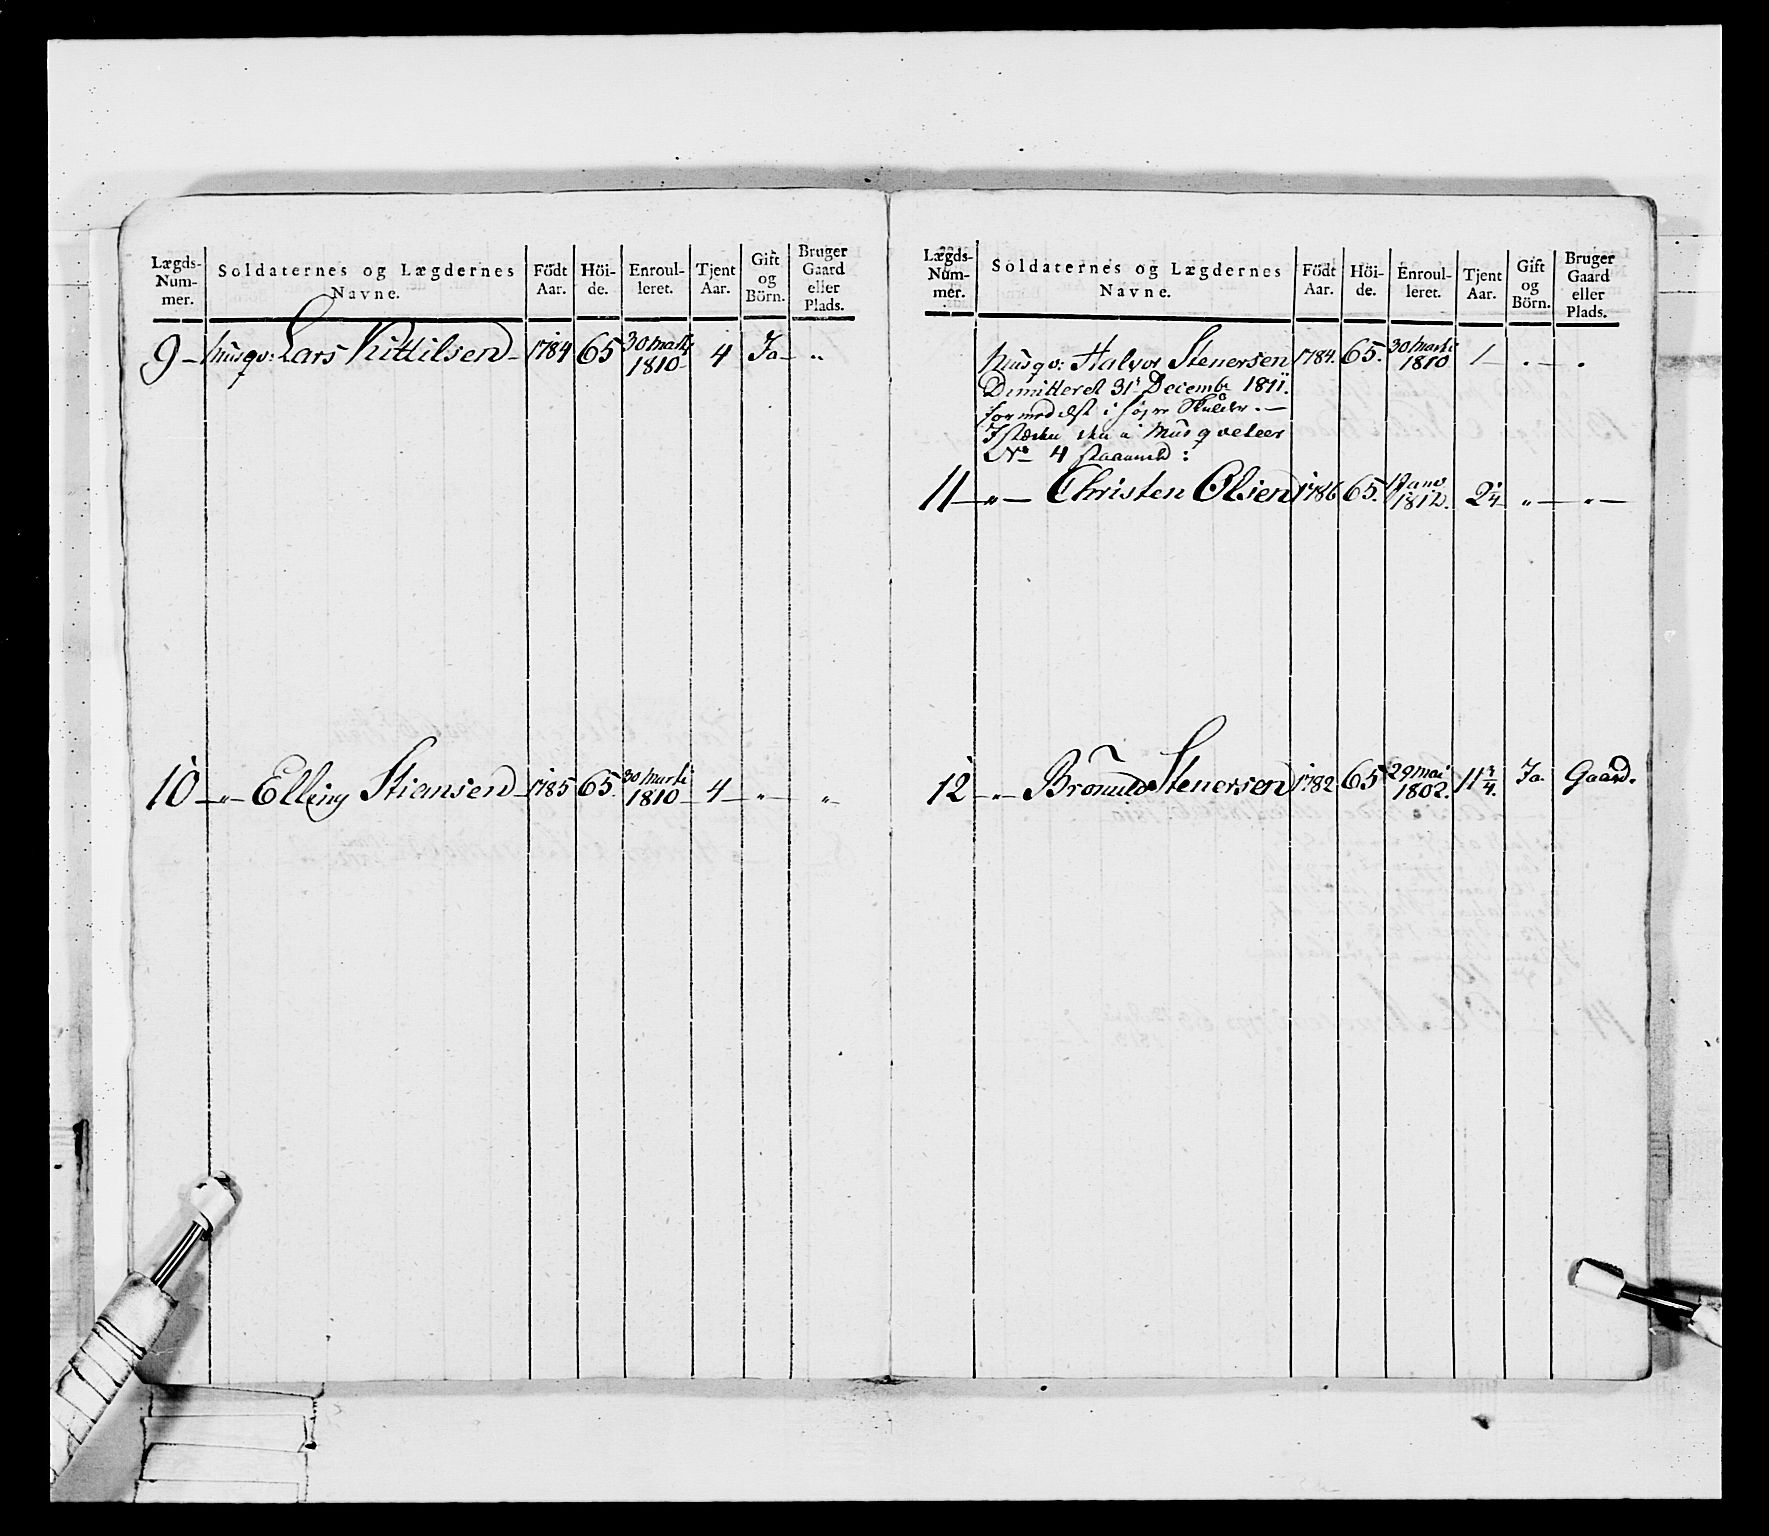 Lægds-Num-mer. Soldaternes og Lægdernes Navne. Födt Aar. Höi-de. Enroul-leret. Tjent Aar. Gift og Börn. Bruger Gaard eller Plads.
9 — Musqv: Lars Kittilsen — 1784 65 30 Marti 1810 4 Ja — „
10 — „ — Elling Stiansen — 1785 65. 30 Marti 1810 — 4 — „ — „
Lægds-Num-mer. Soldaternes og Lægdernes Navne. Födt Aar. Höi-de. Enroul-leret. Tjent Aar. Gift og Börn. Bruger Gaard eller Plads.
Musqv: Halvor Stenersen 1784. 65. 30 Marti 1810 1 — . — .
Dimitteret 31t Decembr 1811.
formedelst i høyre Skulder. —
Musqveteer
No 4
11 — „ — Christen Olsen 1786 65. 1 Janv 1812. 2 1/4 „ — „ —
12 — „ — Bronild Stenersen 1782 65 29 Mai 1802. 11 3/4. Ja Gaard.